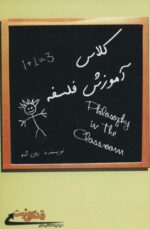 1+1=3
کلاس
آموزش فلسفه
Philosophy
in the
Classroom
نویسنده: رون شاو